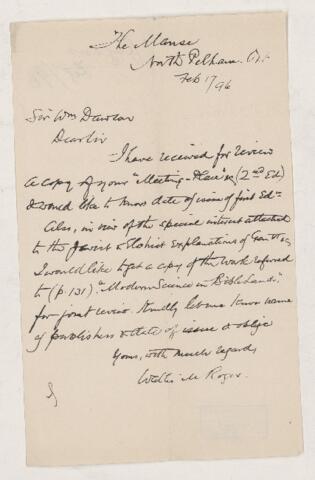 The Manse
North Pelham. Ont
Feb 17/96
Sir Wm Dawson
Dear Sir
I have received for review
a copy of your "Meeting-Place" &c (2nd Ed)
& would like to know date of issue of first Edn
Also, in view of the special interest attached
to the Javist & Elohist explanations of Gen
I would like to get a copy of the work referred
to (p. 131) "Modern Science in Bible Lands,"
for joint review. Kindly let me know name
of publishers & date of issue & oblige
Yours, with much regards
M. Roger